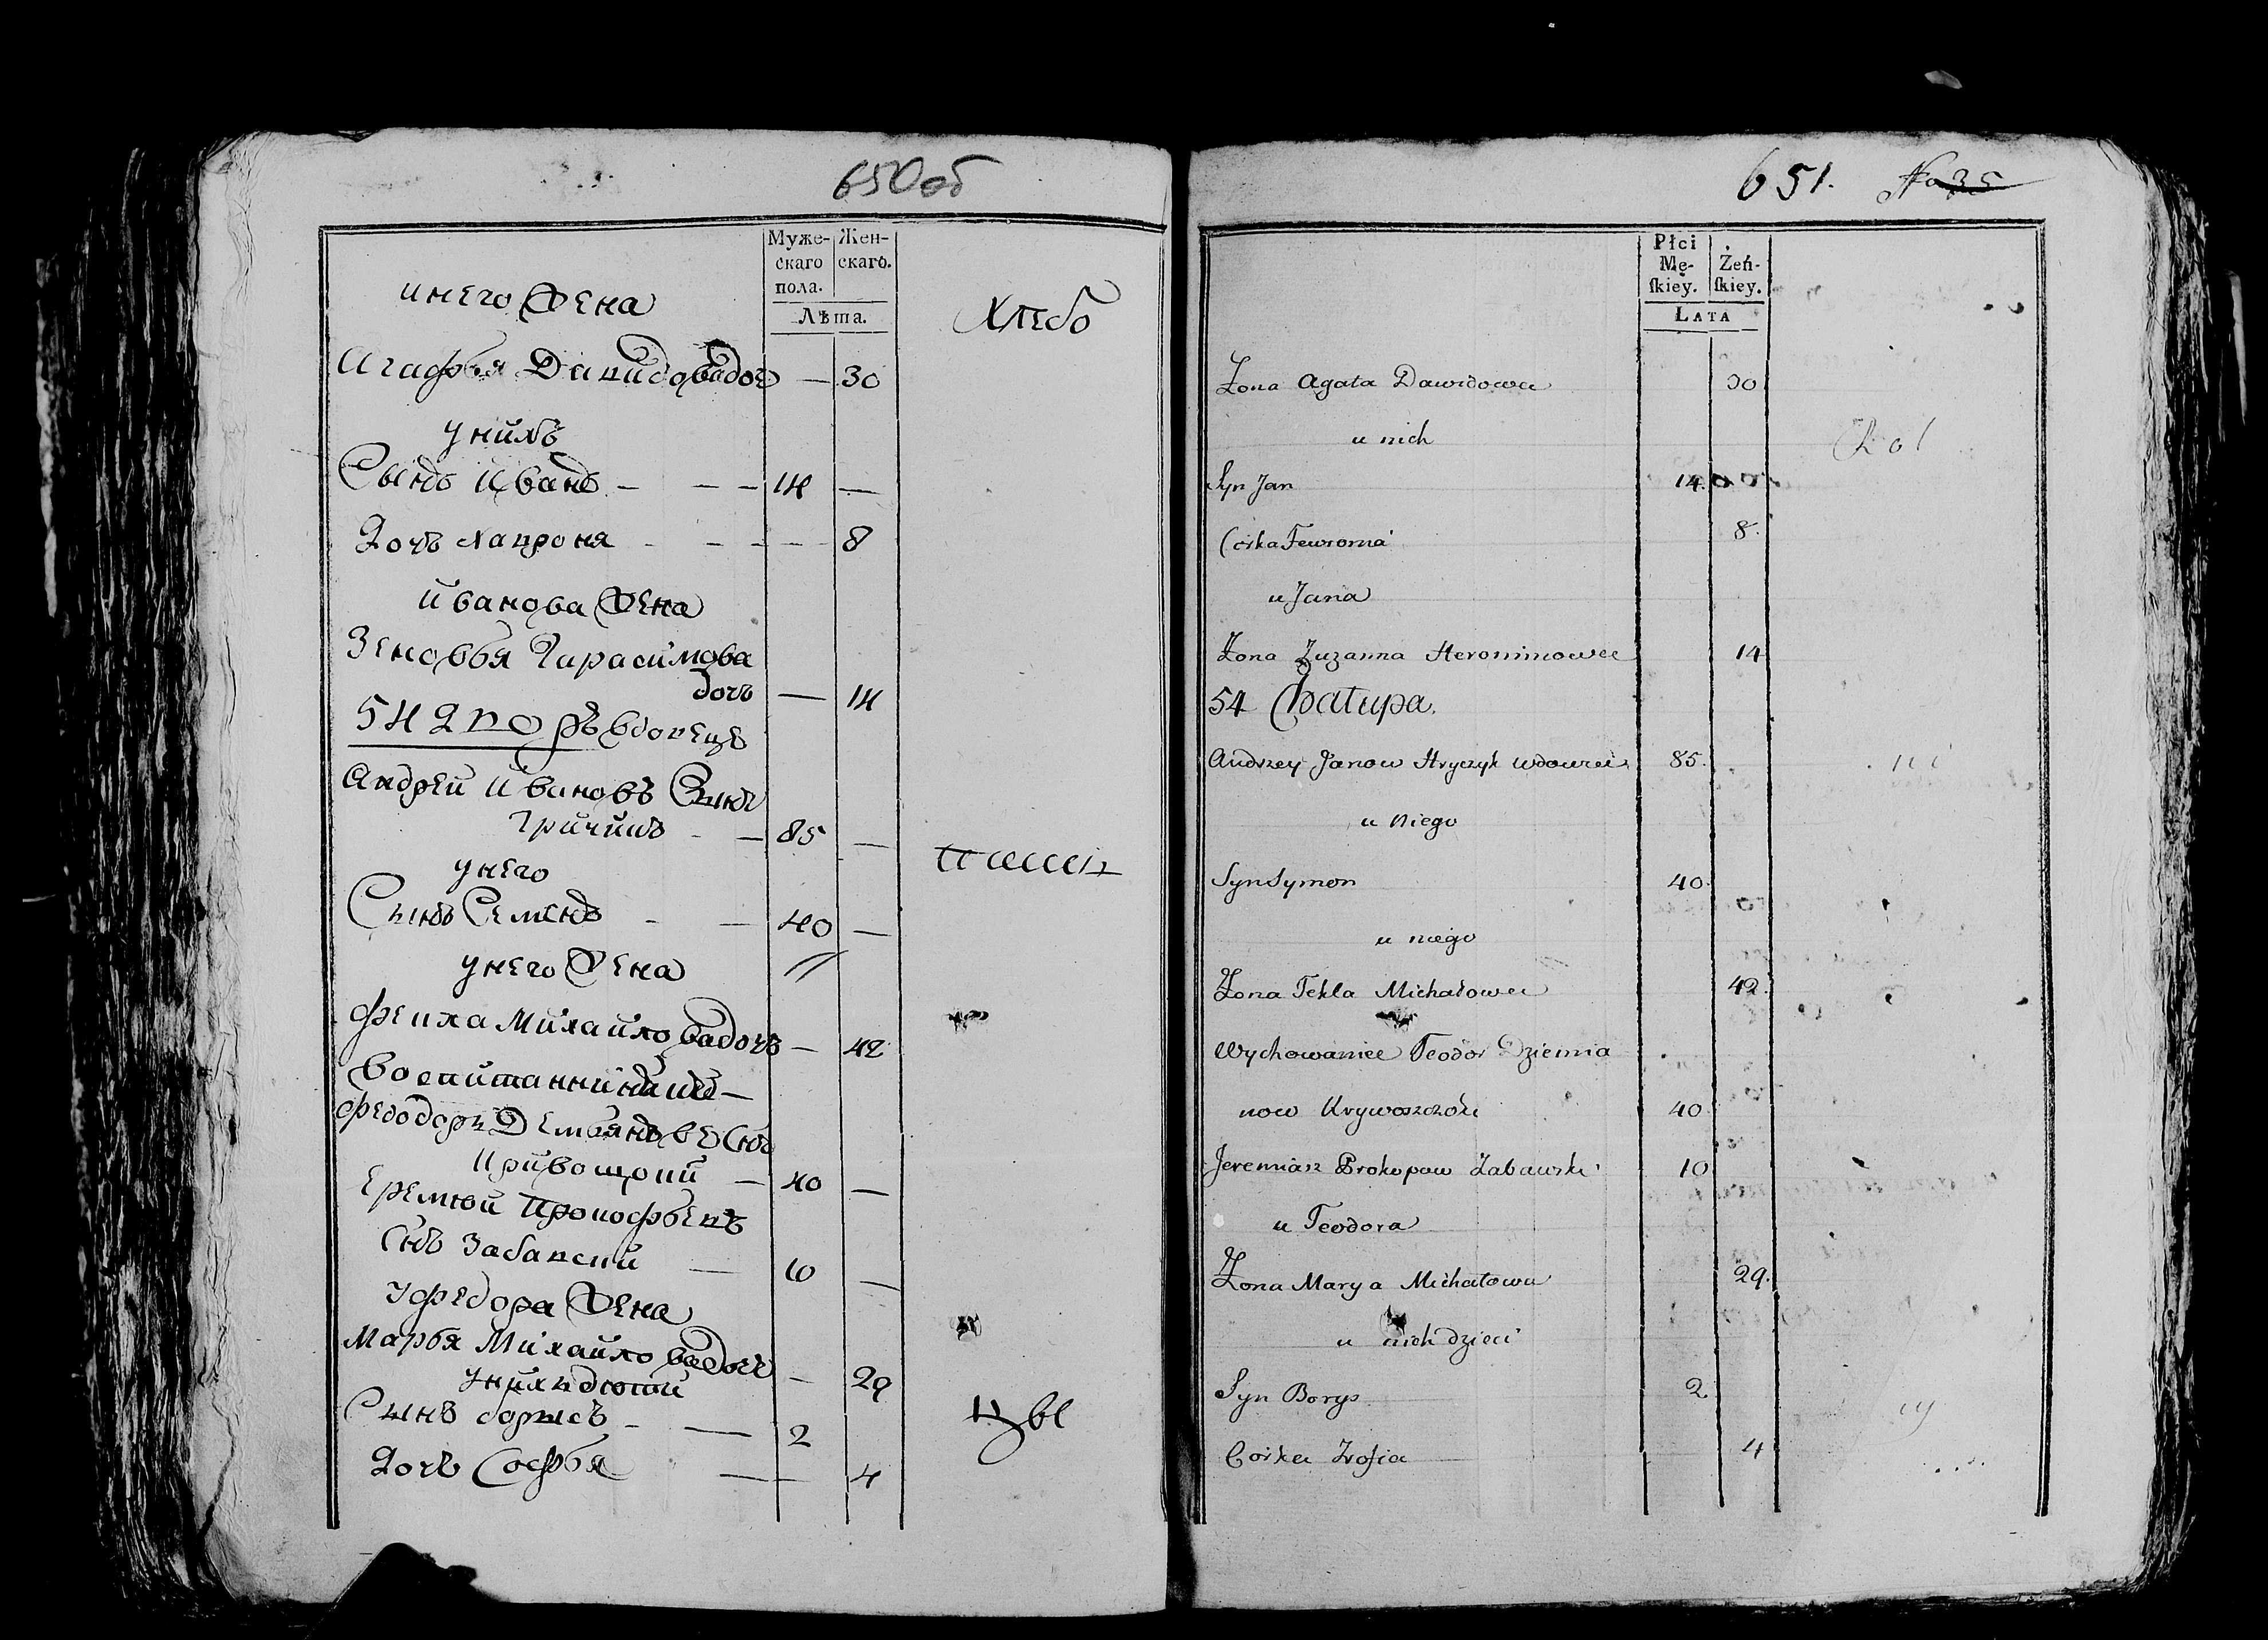 650об
Муже- Жен-
скаго скаго.
пола.
Лѣта.
инего Жена
Хлебо
Агафья Давидова доч — 30
унихъ
Сынъ Иванъ — — — 14 —
Дочь Хавроня — — — — 8
Иванова Жена
Зеновья Гарасимова
дочъ — 14
54 Дворъ вдовецъ
Андрей Ивановъ Сынъ
Гричикъ — — 85 —
унего
пашец
Сынъ Семенъ — — 40 —
унего Жена
Фекла Михайлова дочъ — 42
Воспитанники
Федоръ Демьяновъ Снъ
Кривошопй — 40 —
Еремюй Прокофьевъ
Снъ Забавский — 10 —
уфедора Жена
Марья Михайлова дочъ — 29
унихъ дютей
Сынъ борысъ — — 2
Дочъ Софья — — 4
651. No 35
Płci
Mę- Żeń-
ſkiey. ſkiey.
LATA
Żona Agata Dawidowa 30
u nich
Syn Jan 14.
Corka Fewronia 8.
u Jana
Żona Zuzanna Heronimowa 14
54 Chatupa.
Andrzey Janow Hryczyk wdowiec 85.
u niego
Syn Symon 40.
u niego
Żona Tekla Michałowa 42.
Wychowaniec Teodor Dziemia
now Krywoszczoki 40.
Jeremiasz Prokopow Zabawski 10
u Teodora
Żona Marya Michałowa 29.
u nich dzieci
Syn Borys 2.
Corka Zofia 4